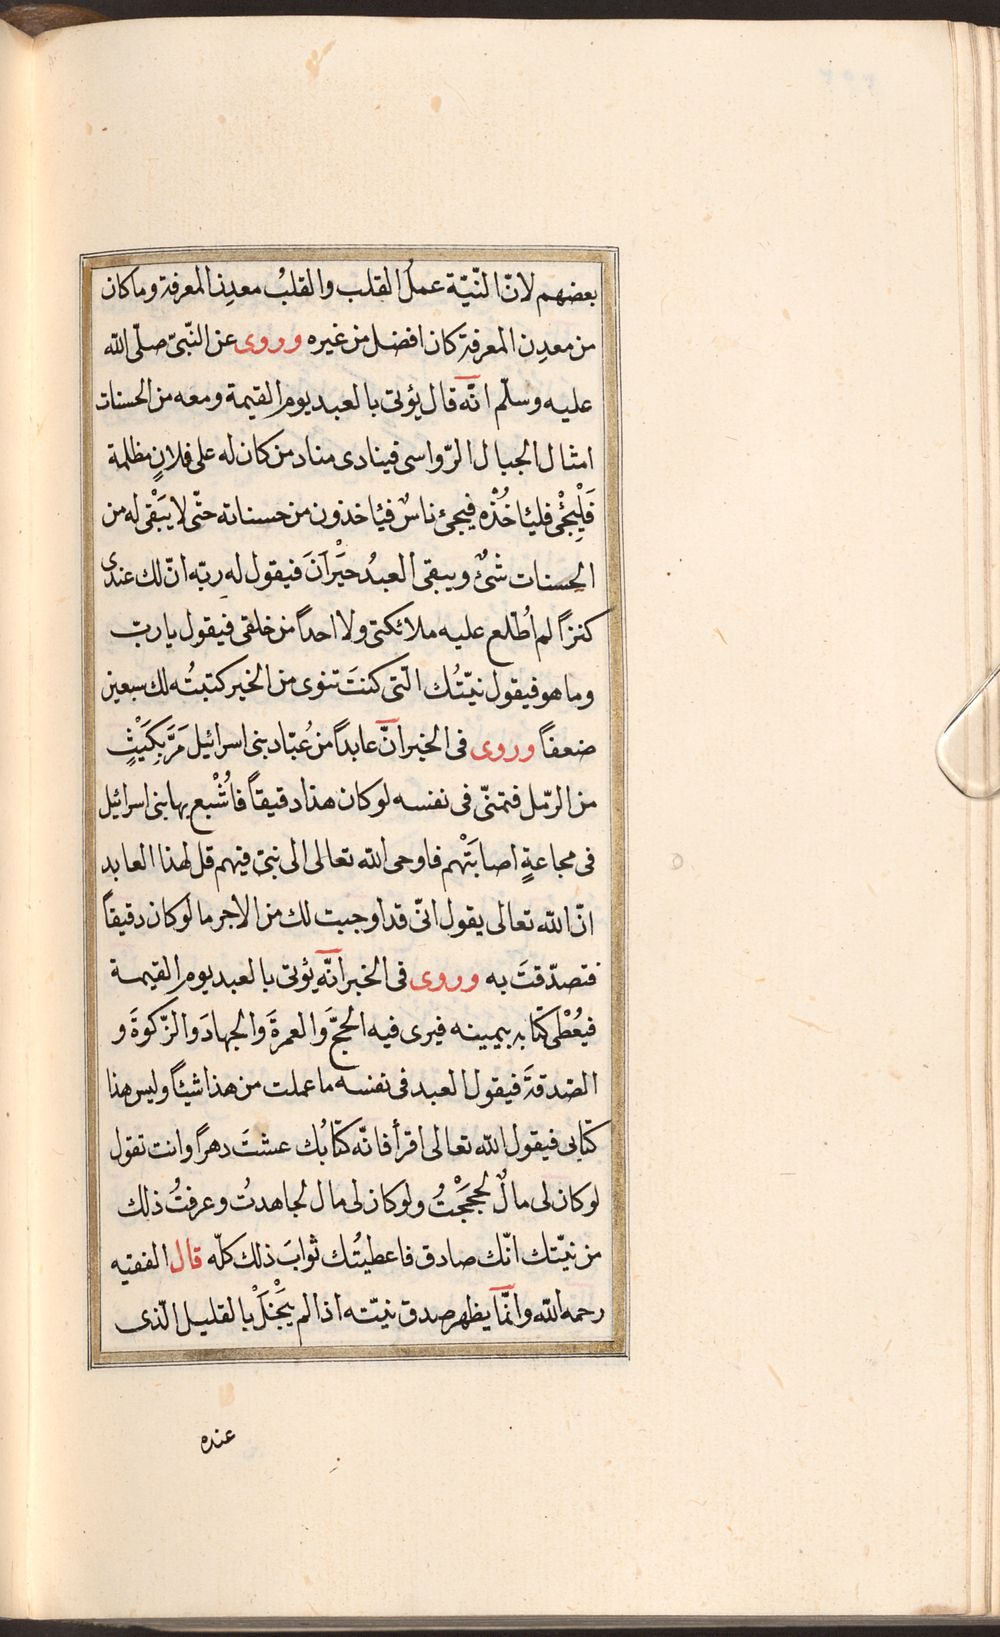 بعضهم لانّ النّيّة عملُ القلب والقلبُ معدِن المعرفة وما كان
من معدِن المعرفة كان افضل من غيره وروى عن النّبىّ صلّى الله
عليه وسلّم انّه قال يؤتى بالعبد يوم القيمة ومعه من الحسنات
امثال الجبال الرّواسى فينادى مناد من كان له على فلانٍ مظلمة
فَلْيَجِئْ فليأخُذْه فيجئ ناسٌ فيأخذون من حسناته حتّى لا يَبْقى له من
الحسنات شىٌٔ ويبقى العبدُ حَيْرَانَ فيقول له ربّه انّ لك عندى
كنزاً لم اُطّلع عليه ملائكتى ولا احداً من خلقى فيقول يا ربّ
وما هو فيقول نيّتُك الّتى كنتَ تنوى من الخير كتبتُه لك سبعين
ضعفاً وروى فى الخبر انّ عابداً من عُبّاد بنى اسرائيل مَرَّ بِكَثِيْبٍ
من الرّمل فتمنّى فى نفسه لو كان هذا دقيقاً فاُشْبع بها بنى اسرائيل
فى مجاعةٍ اصابَتْهم فاوحى الله تعالى الى نبىّ فيهم قل لهذا العابد
انّ الله تعالى يقول انّى قد اوجبت لك من الاجر ما لو كان دقيقاً
فتصدّقتَ به وروى فى الخبر انّه يؤتى بالعبد يوم القيمة
فيُعْطى كتابه بيمينه فيرى فيه الحجَّ والعمرةَ والجهادَ والزّكوةَ و
الصّدقةَ فيقول العبد فى نفسه ما عملت من هذا شيئاً وليس هذا
كتابى فيقول الله تعالى اقرأ فانّه كتابُك عشتَ دهراً وانت تقول
لو كان لى مالٌ لحججْتُ ولو كان لى مال لجاهدتُ وعرفتُ ذلك
من نيّتك انّك صادق فاعطيتُك ثوابَ ذلك كلّه قال الفقيه
رحمه الله وانّما يظهر صدق نيّته اذا لم يَبْخَلْ بالقليل الّذى
عنده